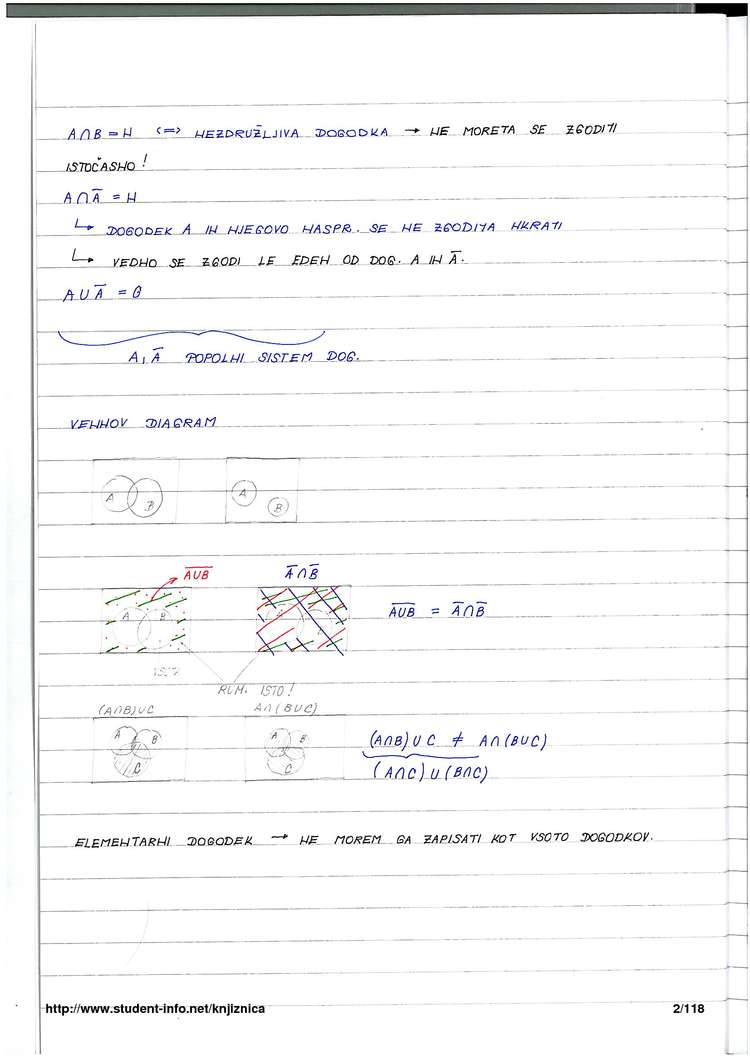 A∩B = N <=> NEZDRUŽLJIVA DOGODKA → NE MORETA SE ZGODITI
ISTOČASNO!
A∩A̅ = N
↳ DOGODEK A IN NJEGOVO NASPR. SE NE ZGODITA HKRATI
↳ VEDNO SE ZGODI LE EDEN OD DOG. A IN A̅.
A∪A̅ = G
A, A̅ POPOLNI SISTEM DOG.
VENNOV DIAGRAM
A B A B
A̅∪̅B̅ A̅∩B̅
A B A̅∪̅B̅ = A̅∩B̅
ISTO!
(A∩B)∪C A∩(B∪C)
A B C A B C
(A∩B)∪C ≠ A∩(B∪C)
(A∩C)∪(B∩C)
ELEMENTARNI DOGODEK → NE MOREM GA ZAPISATI KOT VSOTO DOGODKOV.
http://www.student-info.net/knjiznica 2/118